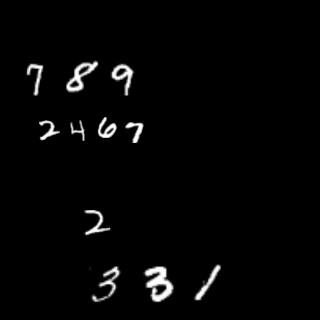 7 8 9
2 4 6 7
2
3 3 1